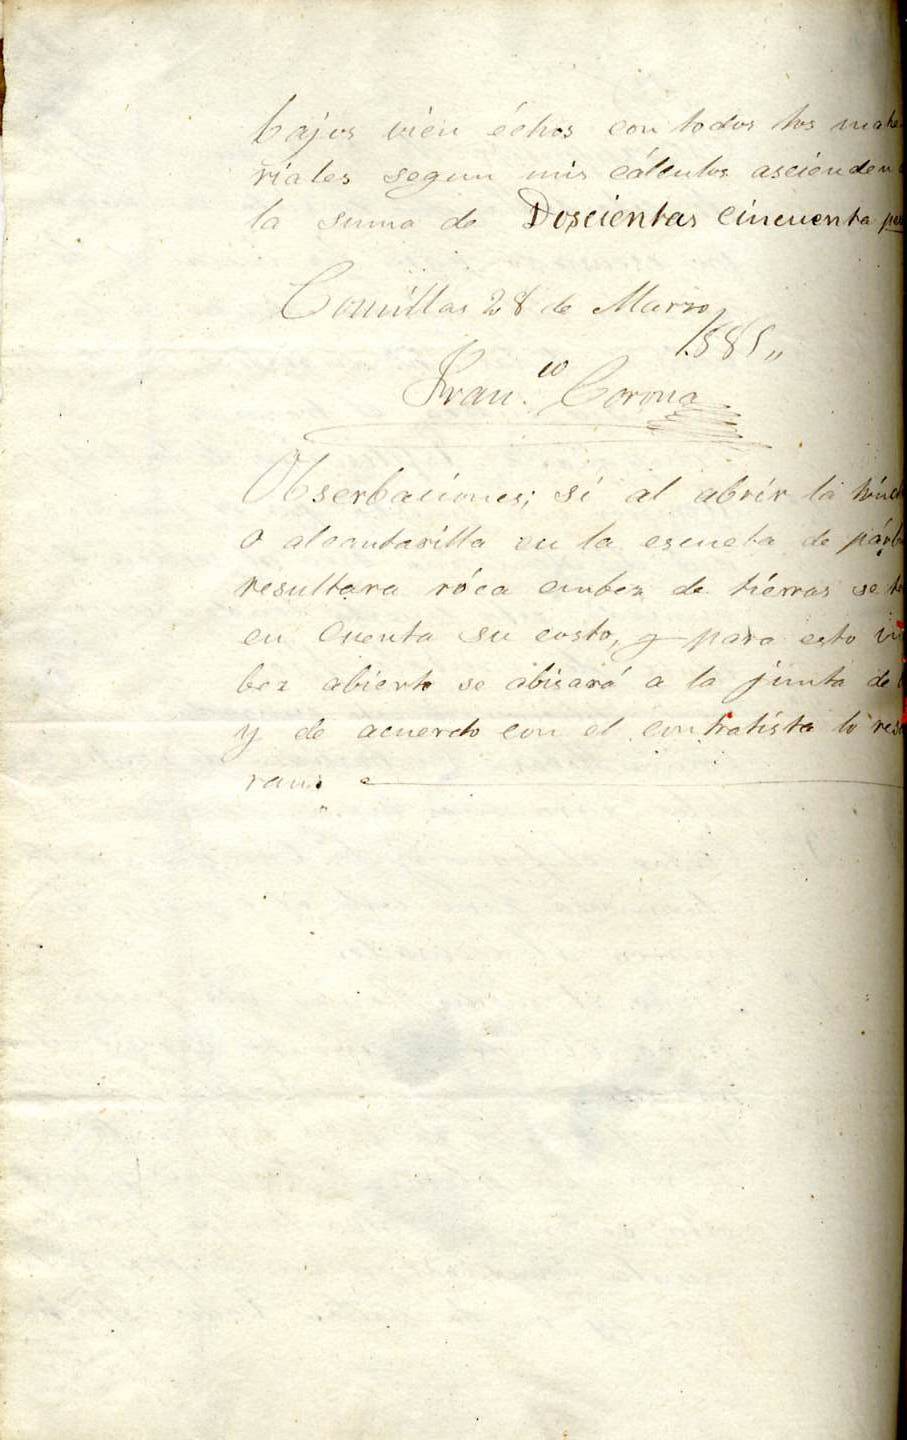 bajos vien échos con todos los mate
riales segun mis cálculos ascienden
la suma de Doscientas cincuenta
Comillas 28 de Marzo
1.885,,
Fran.co Corona
Obserbaciones; si al abrir la
o alcantarilla en la escuela de párb
resultara róca embez de tierras se
en cuenta su costo, y para esto
bez abierto se abisará a la junta de
y de acuerdo con el contratista lo
ran